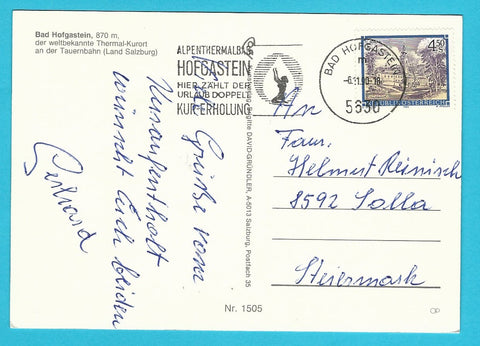 Bad Hofgastein, 870 m,
der weltbekannte Thermal-Kurort
an der Tauernbahn (Land Salzburg)
ALPENTHERMALBAD
HOFGASTEIN
HIER ZÄHLT DER
URLAUB DOPPELT
KUR-ERHOLUNG
BAD HOFGASTEIN
5630
4.50
REPUBLIK ÖSTERREICH
Grüße vom
Kuraufenthalt
wünscht Euch beiden
Gerhard
Brigitte DAVID-GRÜNDLER, A-5013 Salzburg, Postfach 35
An
Fam.
Helmut Reinisch
8592 Salla
Steiermark
Nr. 1505